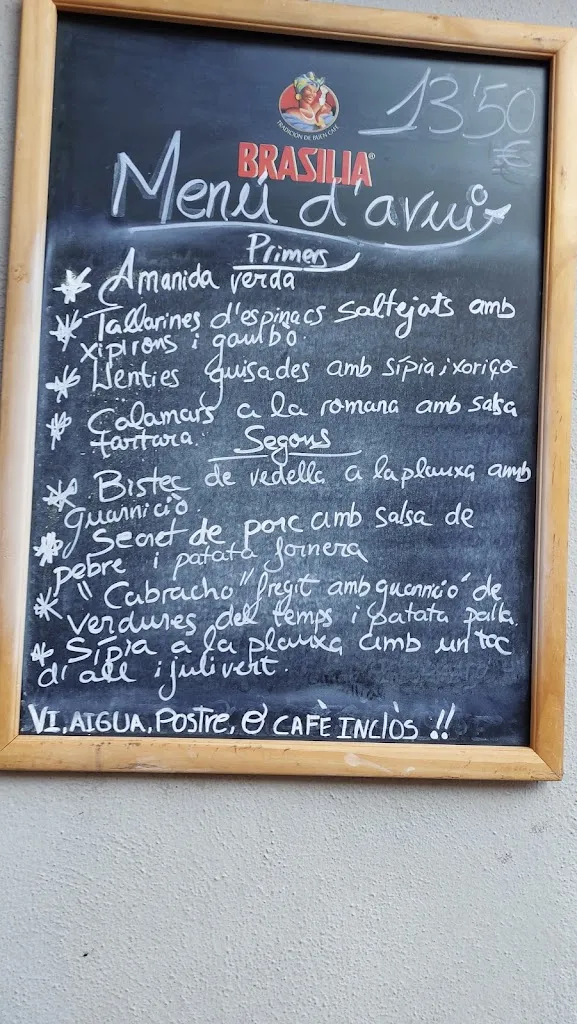 TRADICIÓN DE BUEN CAFÉ
13'50
€
BRASILIA®
Menú d'avui
Primers
* Amanida verda
* Tallarines d'espinacs saltejats amb
xipirons i gambó.
* Llenties guisades amb sípia i xoriço
* Calamars a la romana amb salsa
tartara.
Segons
* Bistec de vedella a la planxa amb
guarnició.
* Secret de porc amb salsa de
pebre i patata fornera
* "Cabracho" fregit amb guarnició de
verdures del temps i patata palla.
* Sípia a la planxa amb un toc
d'all i julivert.
VI, AIGUA, POSTRE, O CAFÈ INCLÒS !!